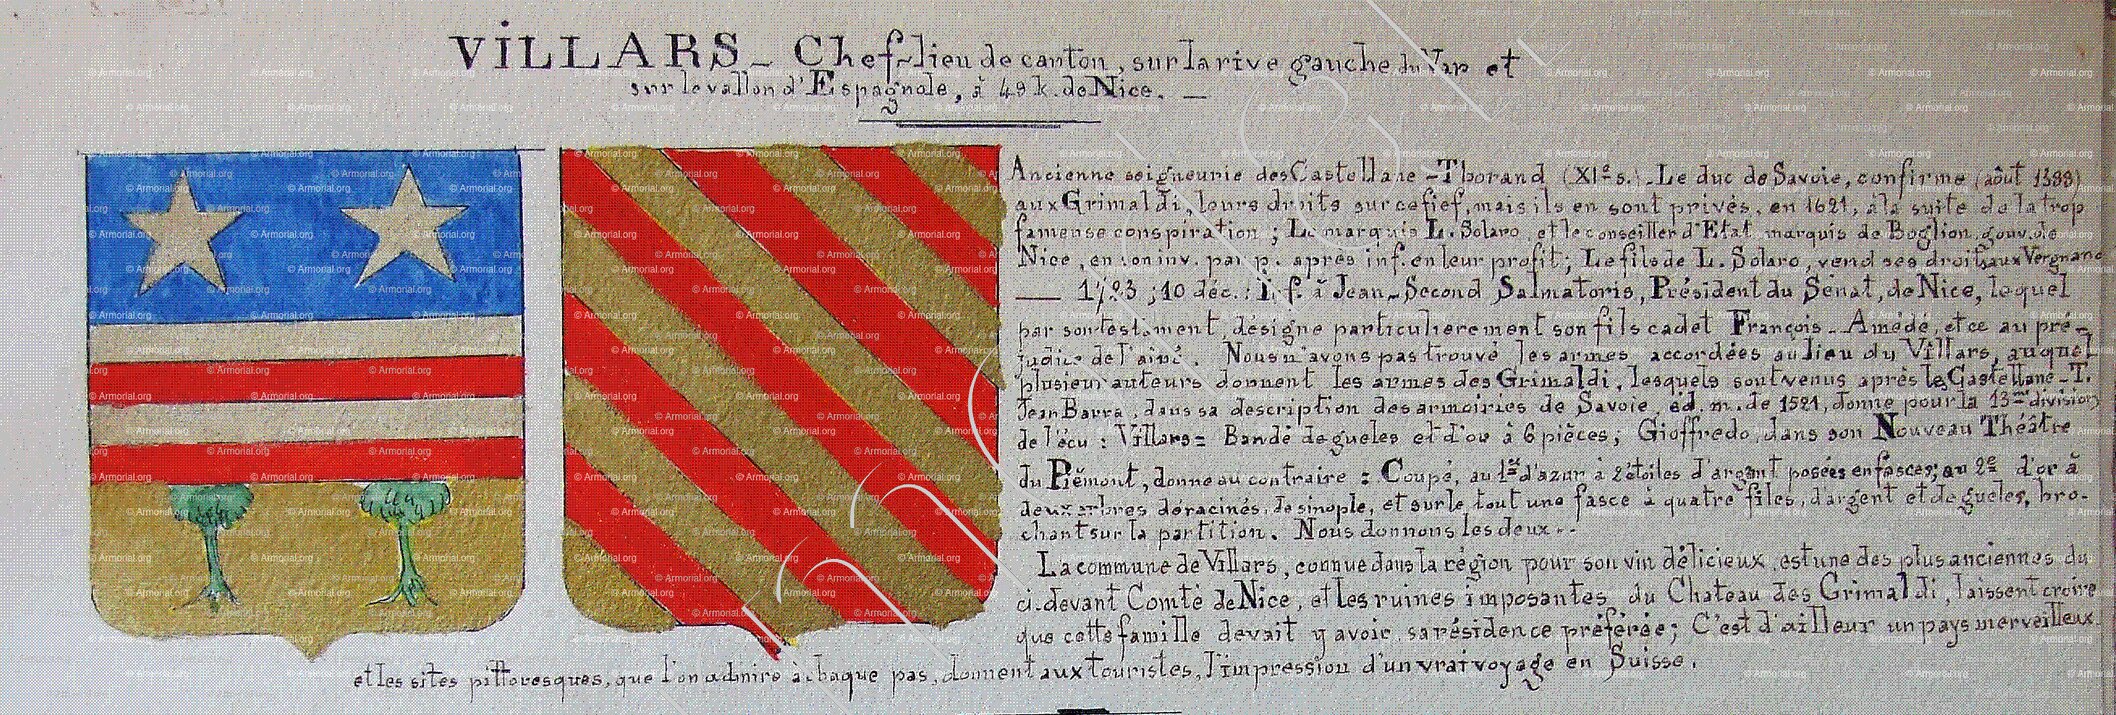 VILLARS - Chef-lieu de canton, sur la rive gauche du Var et
sur le vallon d'Espagnole, à 49 k. de Nice. —
Ancienne seigneurie des Castellane-Thorand (XIe s.) - Le duc de Savoie, confirme (août 1388)
aux Grimaldi, leurs droits sur ce fief, mais ils en sont privés, en 1621, à la suite de la trop
fameuse conspiration ; Le marquis L. Solaro, et le conseiller d'Etat, marquis de Boglion, gouv. de
Nice, en son inv. par p. après inf. en leur profit ; Le fils de L. Solaro, vend ses droits aux Vergnano
— 1723 ; 10 déc. : Inf. à Jean-Second Salmatoris, Président du Sénat, de Nice, lequel
par son testament, désigne particulierement son fils cadet François-Amédé, et ce au pré-
judice de l'ainé. Nous n'avons pas trouvé les armes accordées au lieu du Villars, auquel
plusieur auteurs donnent les armes des Grimaldi, lesquels sont venus après les Castellane-T.
Jean Barra, dans sa description des armoiries de Savoie, éd. m. de 1521, donne pour la 13me division
de l'écu : Villars = Bandé de gueles et d'or à 6 pièces ; Gioffredo, dans son Nouveau Théâtre
du Piémont, donne au contraire : Coupé, au 1er d'azur à 2 étoiles d'argent posées en fasces ; au 2e d'or à
deux arbres déracinés, de sinople, et sur le tout une fasce à quatre files, d'argent et de gueles, bro-
chant sur la partition. Nous donnons les deux --
La commune de Villars, connue dans la région pour son vin délicieux, est une des plus anciennes du
ci-devant Comté de Nice, et les ruines imposantes du Chateau des Grimaldi, laissent croire
que cette famille devait y avoir sa résidence préférée ; C'est d'ailleur un pays merveilleux
et les sites pittoresques, que l'on admire à chaque pas, donnent aux touristes, l'impression d'un vrai voyage en Suisse.
© Armorial.org